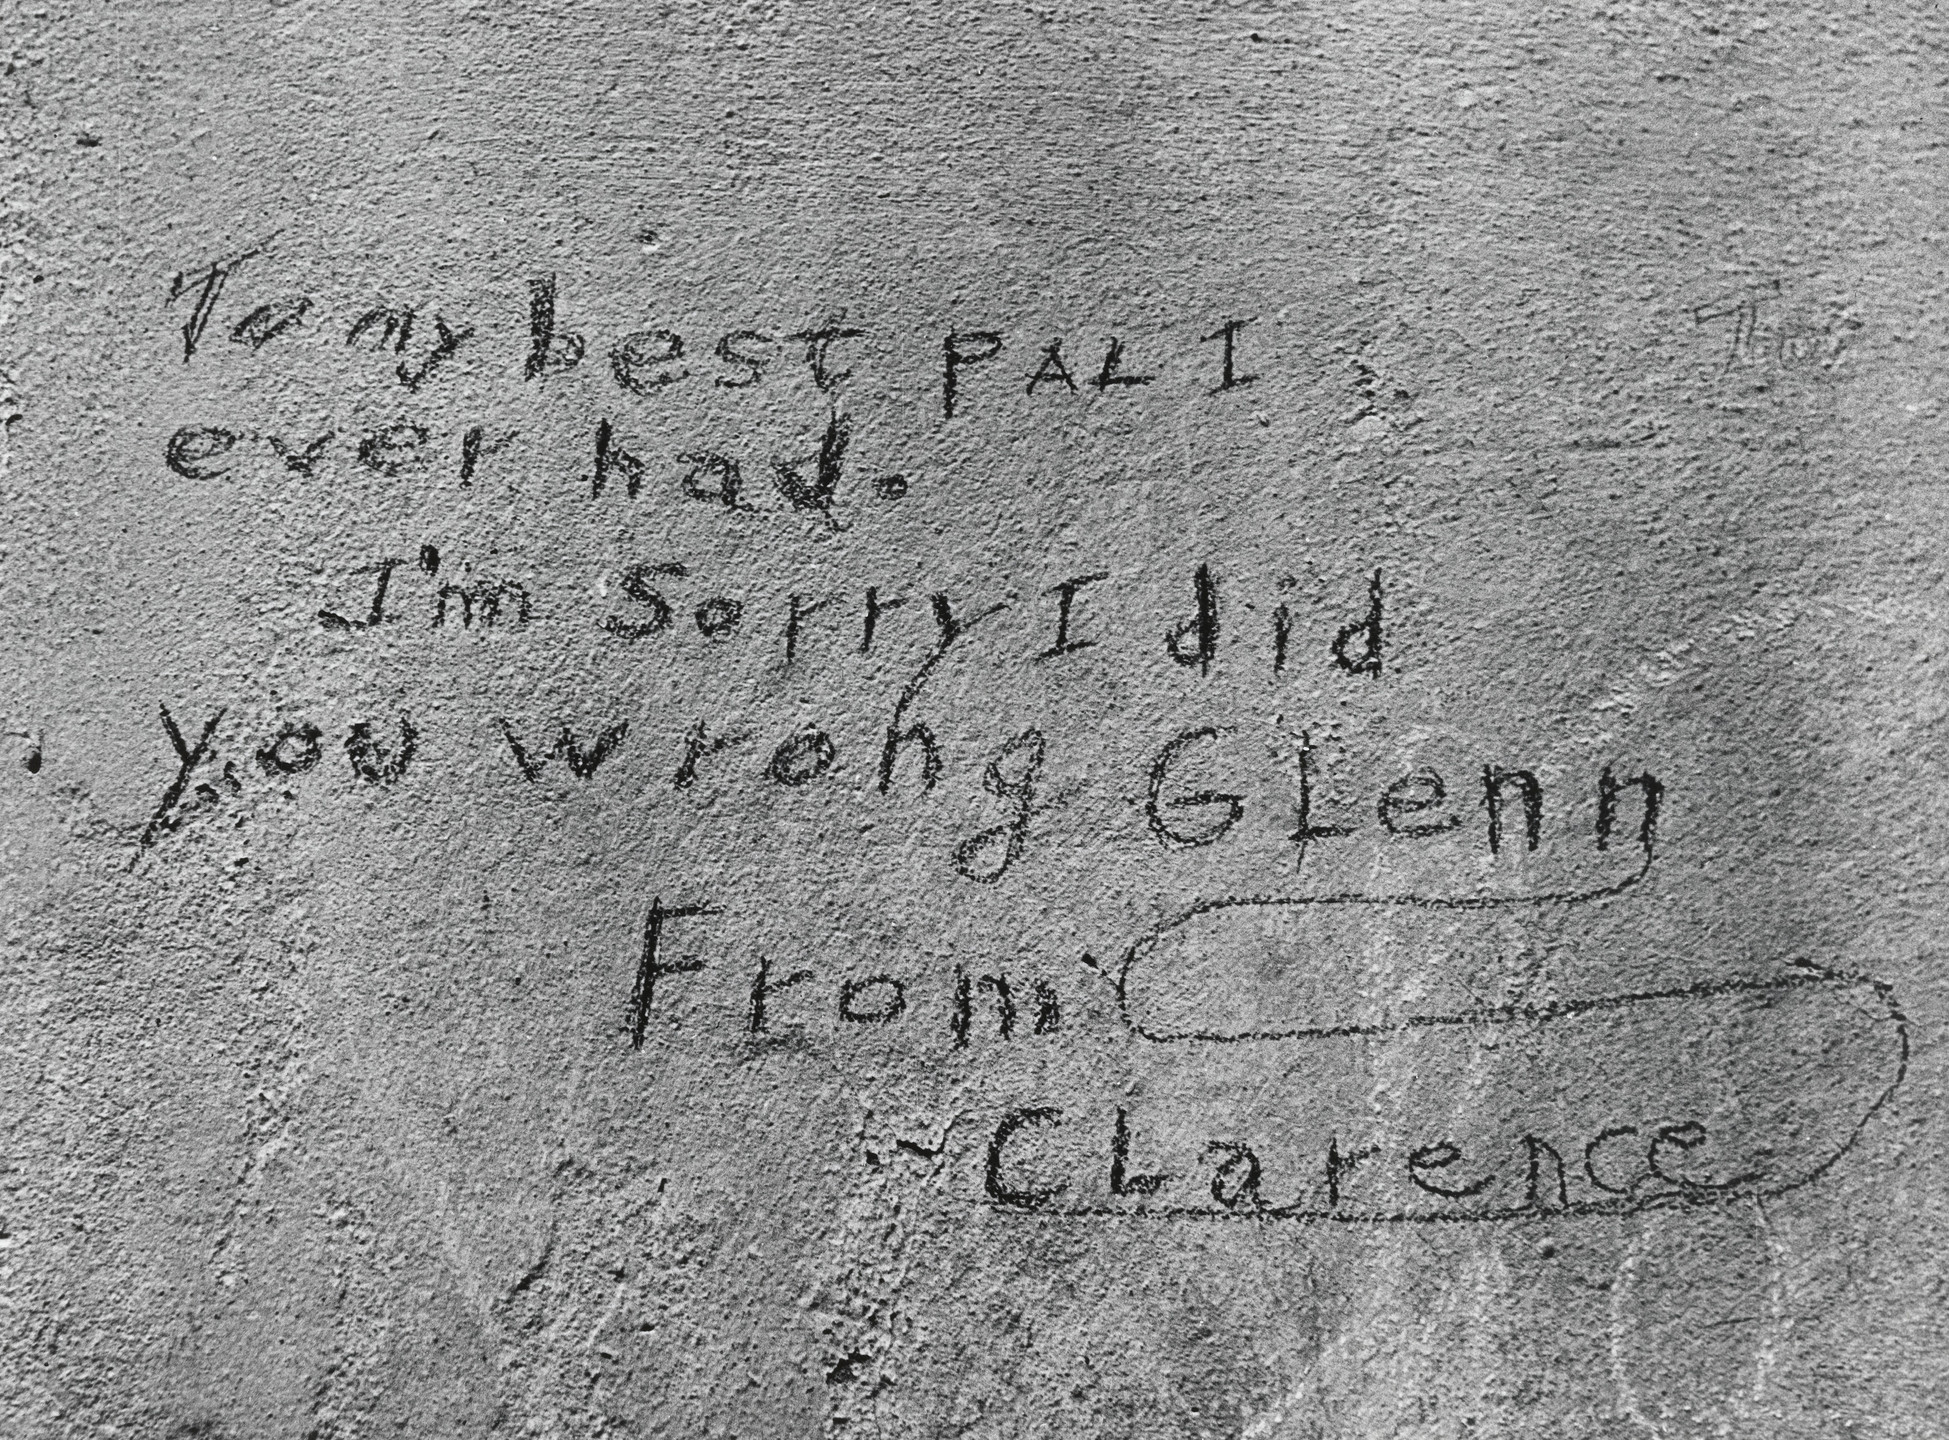 To my best PAL I
ever had.
I'm Sorry I did
you wrong GLenn
From
CLarence